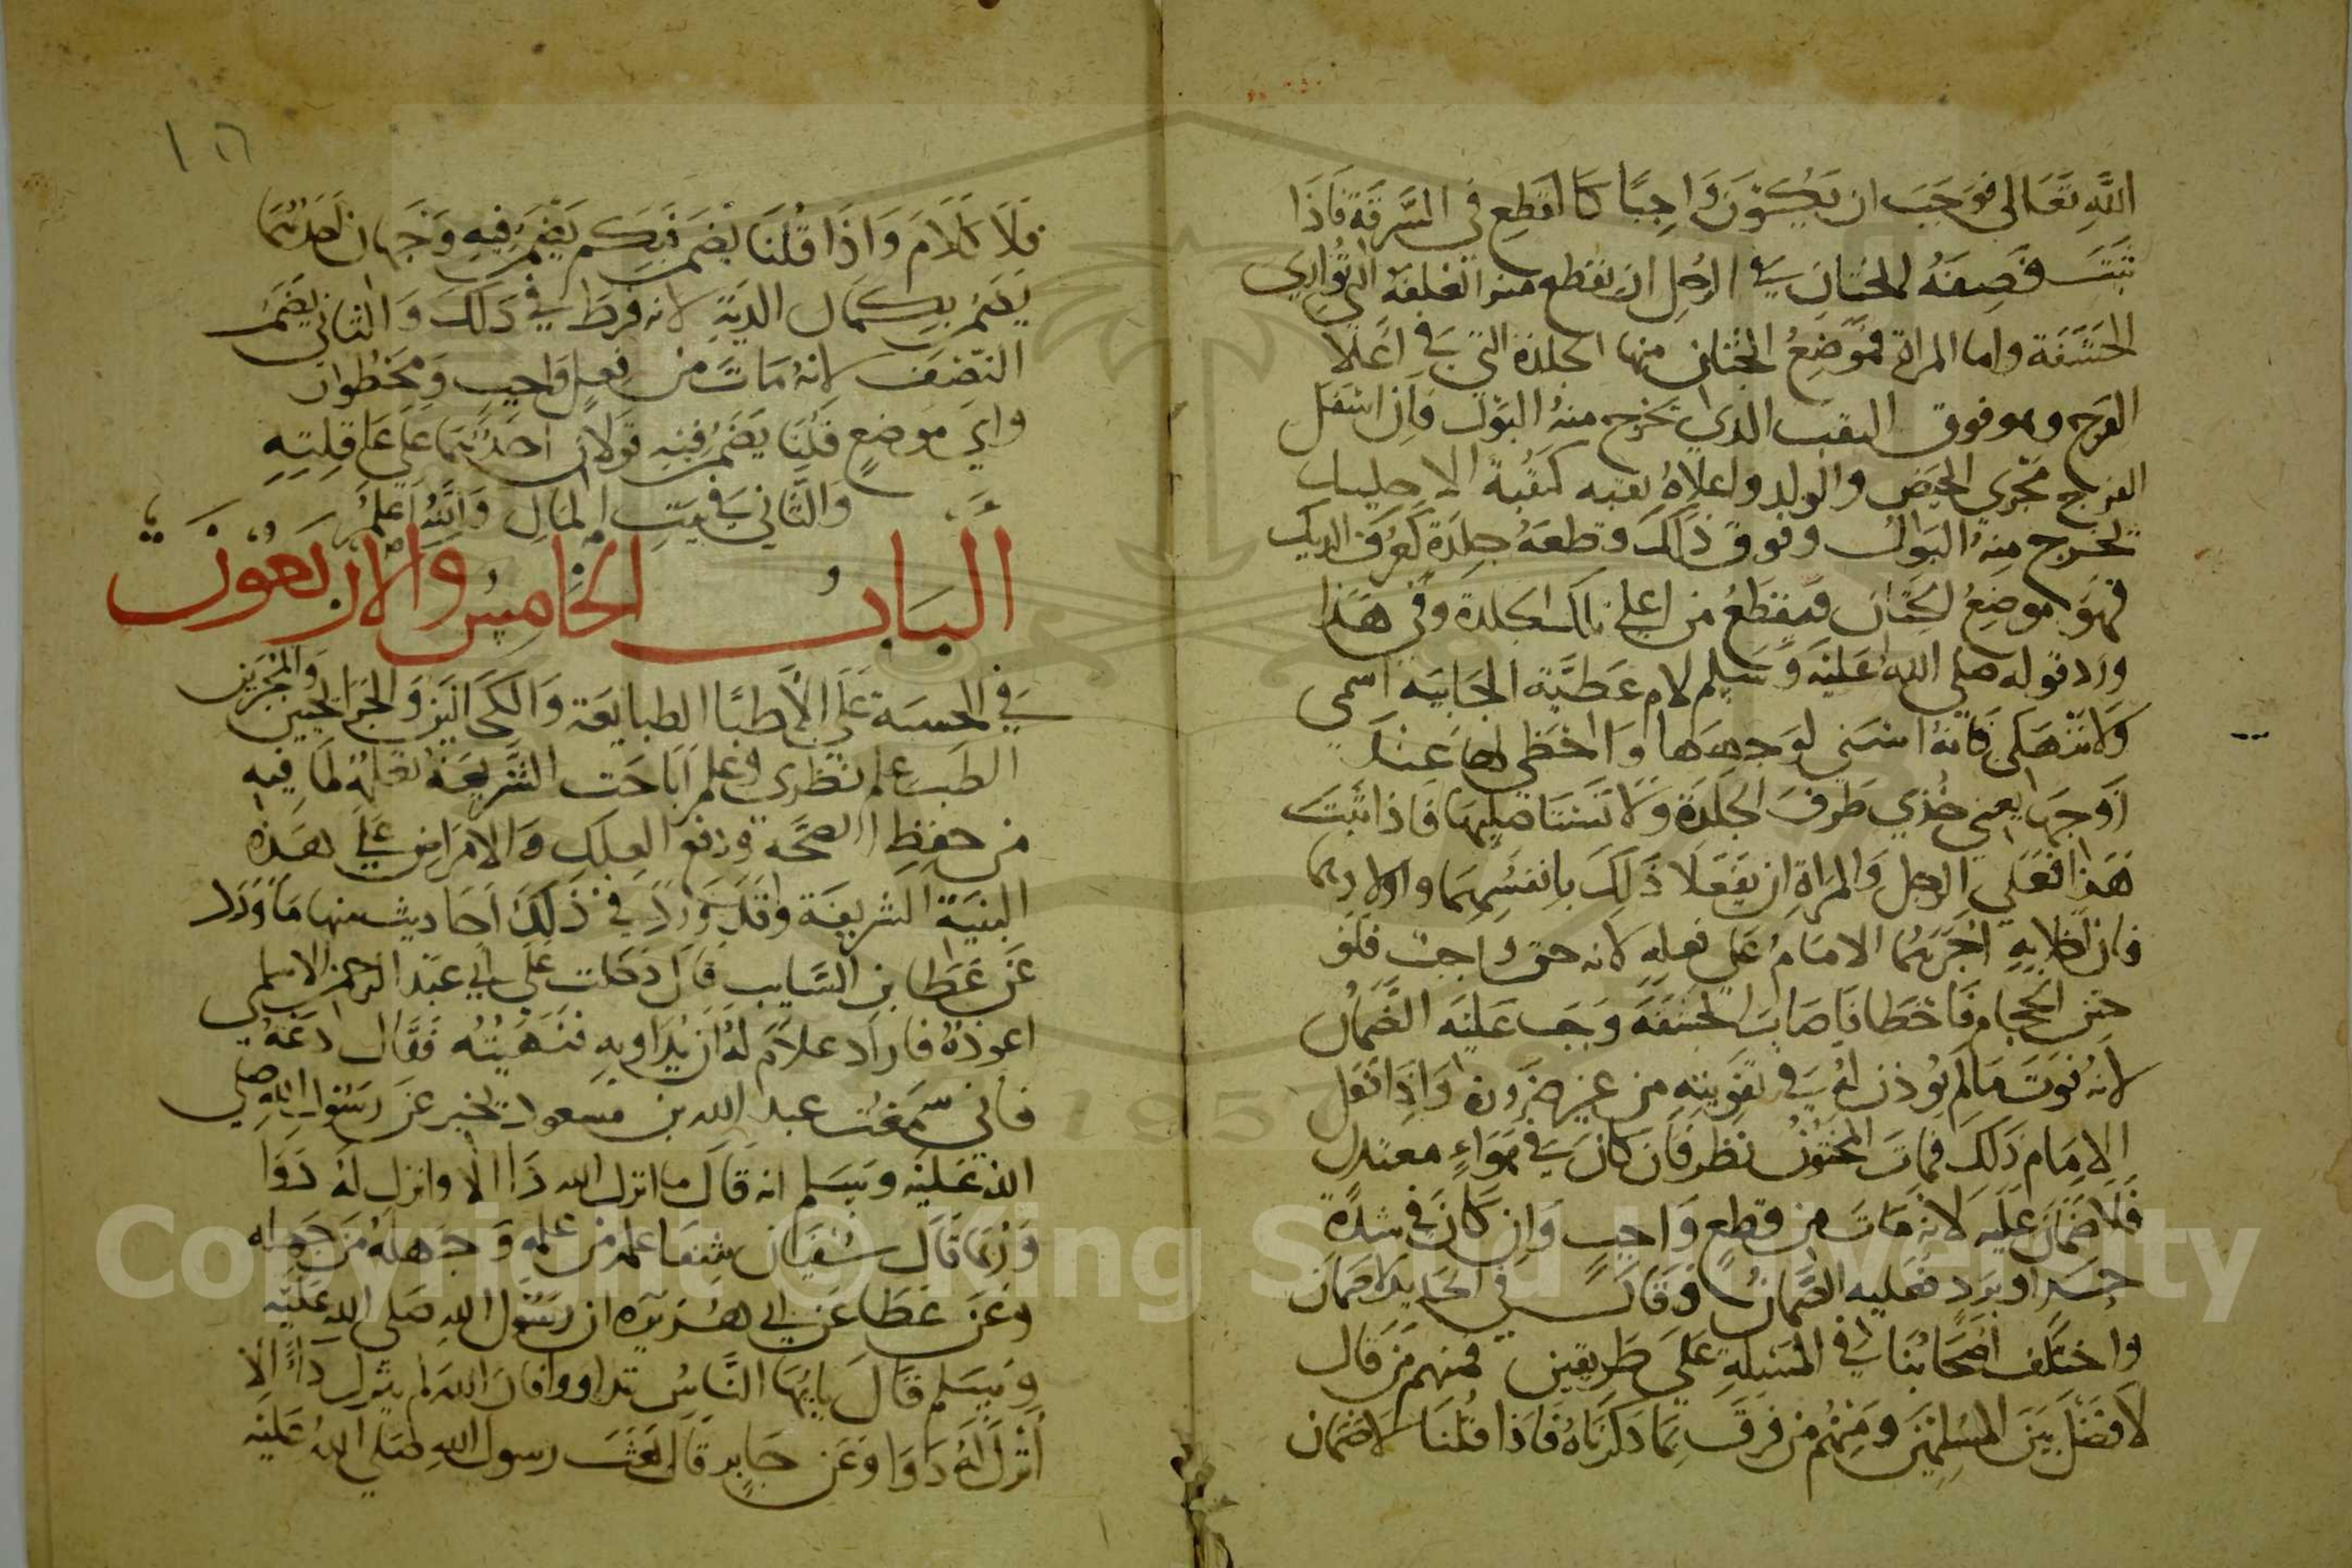 الله تعالى فوجب ان يكون واجبا كالقطع في السرقة فاذا
ثبت فصفة الختان في الرجل ان يقطع منه الغلفة التي تواري
الحشفة واما المراة فموضع الختان منها الجلدة التي في اعلا
الفرج وهو فوق الثقب الذي يخرج منه البول فان اسفل
الفرج مجرى الحيض والولد واعلاه ثقبه كثقبة الاحليل
تخرج منه البول وفوق ذلك وقطعه جلدة كعرف الديك
فهو موضع الختان فيقطع من اعلى تلك الجلدة وفي هذا
ورد قوله صلى الله عليه وسلم لام عطية الجانيه اسمي
ولا تنهكي فانه اسنى لوجهها واحظى لها عند
زوجها يعني خذي طرف الجلدة ولا تستاصليها فاذا ثبت
هذا فعلى الرجل والمراة ان يفعلا ذلك بانفسهما واولادهما
فان اخلا به اجبرهما الامام على فعله لانه حق واجب فلو
ختن الحجام فاخطا فاصاب الحشفة وجب عليه الضمان
لانه فوت ما لم يوذن له في تفويته من غير ضرورة واذا فعل
الامام ذلك فمات المختون نظر فان كان في هواء معتدل
فلا ضمان عليه لانه مات من قطع واجب وان كان في شدة
حر او برد فعليه الضمان وقال في الحد لا ضمان
واختلف اصحابنا في المسئلة على طريقين فمنهم من قال
لا فضل بين المسلمين ومنهم من فرق بما ذكرناه فاذا قلنا لا ضمان
١٥
فلا كلام واذا قلنا يضمن فبكم يضمن فيه وجهان احدهما
يضمن بكمال الدية لانه فرط في ذلك والثاني يضمن
النصف لانه مات من فعل واجب ومحظوان
واي موضع قلنا يضمن فيه قولان احدهما على عاقلته
والثاني في بيت المال والله اعلم
الباب الخامس والاربعون
في الحسبة على الاطبا الطبايعة والكحالين والجرايحيين والمجبرين
الطب علم نظري وعلم اباحت الشريعة تعلمه لما فيه
من حفظ الصحة ودفع العلل والامراض على هذه
البنية الشريفة وقد ورد في ذلك احاديث منها ما ورد
عن عطا بن السايب قال دخلت على ابي عبد الرحمن الاسلمي
اعوده فاراد غلام له ان يداويه فنهيته فقال دعه
فاني سمعت عبد الله بن مسعود يخبر عن رسول الله صلى
الله عليه وسلم انه قال ما انزل الله داا الا وانزل له دوا
وربما قال سفيان شفا علمه من علمه وجهله من جهله
وعن عطا عن ابي هريرة ان رسول الله صلى الله عليه
وسلم قال يايها الناس تداووا فان الله لم ينزل داء الا
انزل له دوا وعن جابر قال بعث رسول الله صلى الله عليه
Copyright © King Saud University
1957